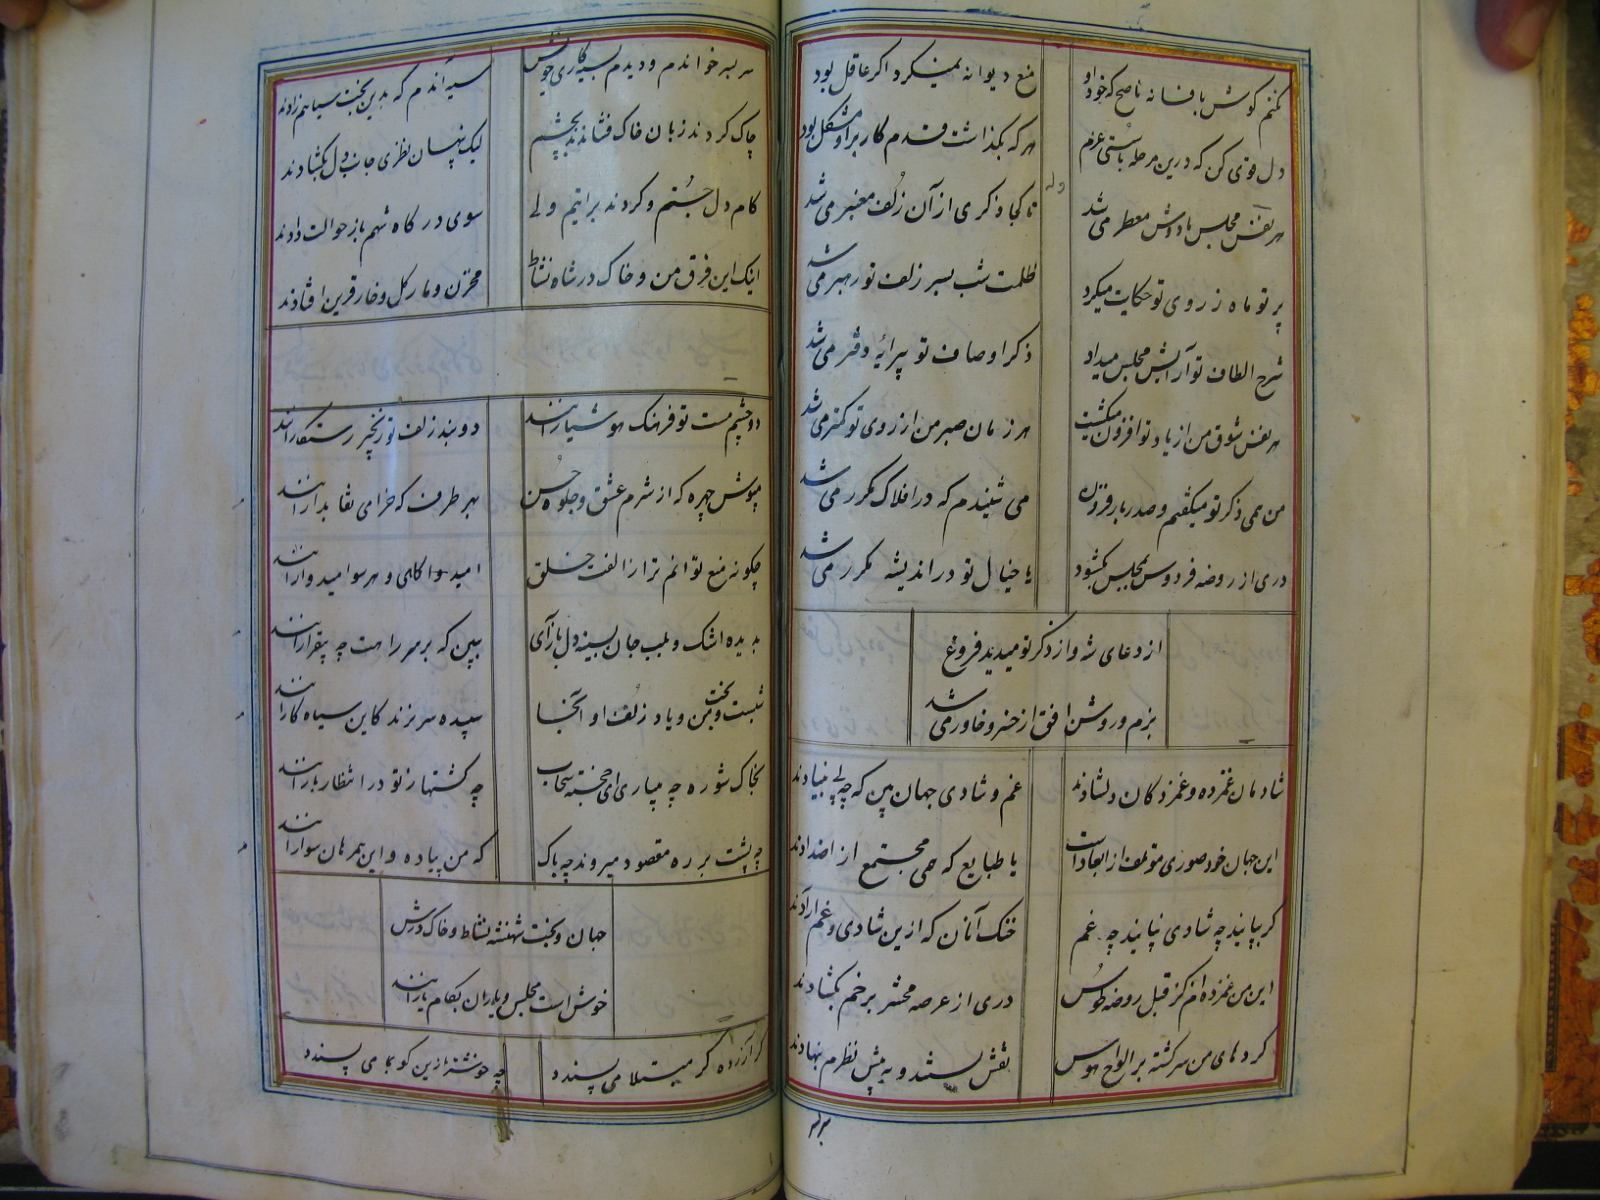 نکنم گوش بافسانه ناصح که خود او
منع دیوانه نمیکرد اگر عاقل بود
دل قوی کن که درین مرحله با سستی عزم
هر که بگذاشت قدم کار بر او مشکل بود
وله
هر نفس مجلس ما دوش معطر می‌شد
تا کجا ذکری از آن زلف معنبر می‌شد
پرتو ماه ز روی تو حکایت میکرد
ظلمت شب بسر زلف تو رهبر می‌شد
شرح الطاف تو آرایش مجلس میداد
ذکر اوصاف تو پیرایهٔ دفتر می‌شد
هر نفس شوق من از یاد تو افزون میگشت
هر زمان صبر من از روی تو کمتر می‌شد
من همی ذکر تو میگفتم و صد بار فزون
می شنیدم که در افلاک مکرر می‌شد
دری از روضه فردوس بمجلس بگشود
یا خیال تو در اندیشه مکرر می‌شد
از دعای شه و از ذکر تو میدید فروغ
بزم و روشن افق از خسرو خاور می‌شد
شادمان غمزده و غمزدگان دلشادند
غم و شادی جهان بین که چه بی بنیادند
این جهان خود صوری مؤتلف از ابعاد است
یا طبایع که همی مجتمع از اضدادند
گر بپایند چه شادی نپایند چه غم
خنک آنان که ازین شادی و غم آزادند
این من غمزده ام کز قبل روضه طوس
دری از عرصه محشر برخم بگشادند
کردهای من سرگشته بر الواح هوس
نقش بستند و به پیش نظرم بنهادند
سر بسر خواندم و دیدم بسیه کاری خویش
سیه آندم که بدین بخت سیاهم زادند
چاک کردند زبان خاک فشاندند بچشم
لیک پنهان نظری جانب دل بگشادند
کام دل جستم و کردند براتیم ولی
سوی درگاه شهم باز حوالت دادند
اینک این فرق من و خاک در شاه نشاط
مخزن و مار گل و خار قرین افتادند
دو چشم مست تو فرهنگ هوشیارانند
دو بند زلف تو زنجیر رستگارانند
مپوش چهره که از شرم عشق و جلوه حسن
بهر طرف که خرامی نقاب دارانند
چگونه منع توانم ترا ز الفت خلق
امیدواگهی و هر سو امیدوارانند
بدیده اشک و بلب جان بسینه دل بازآی
ببین که بر سر راهت چه بیقرارانند
شبست و بخت من و یاد زلف او آنجا
سپیده سر نزند کاین سیاه کارانند
بخاک شوره چه میباری ای خجسته سحاب
چه کشتها ز تو در انتظار بارانند
چه پشت بر ره مقصود میروند چه باک
که من پیاده و این همرهان سوارانند
جهان و بخت شهنشه نشاط و خاک درش
خوش است مجلس و یاران بکام یارانند
گر آزرده گر مبتلا می پسندد
چه خوشتر ازین کو بما می پسندد